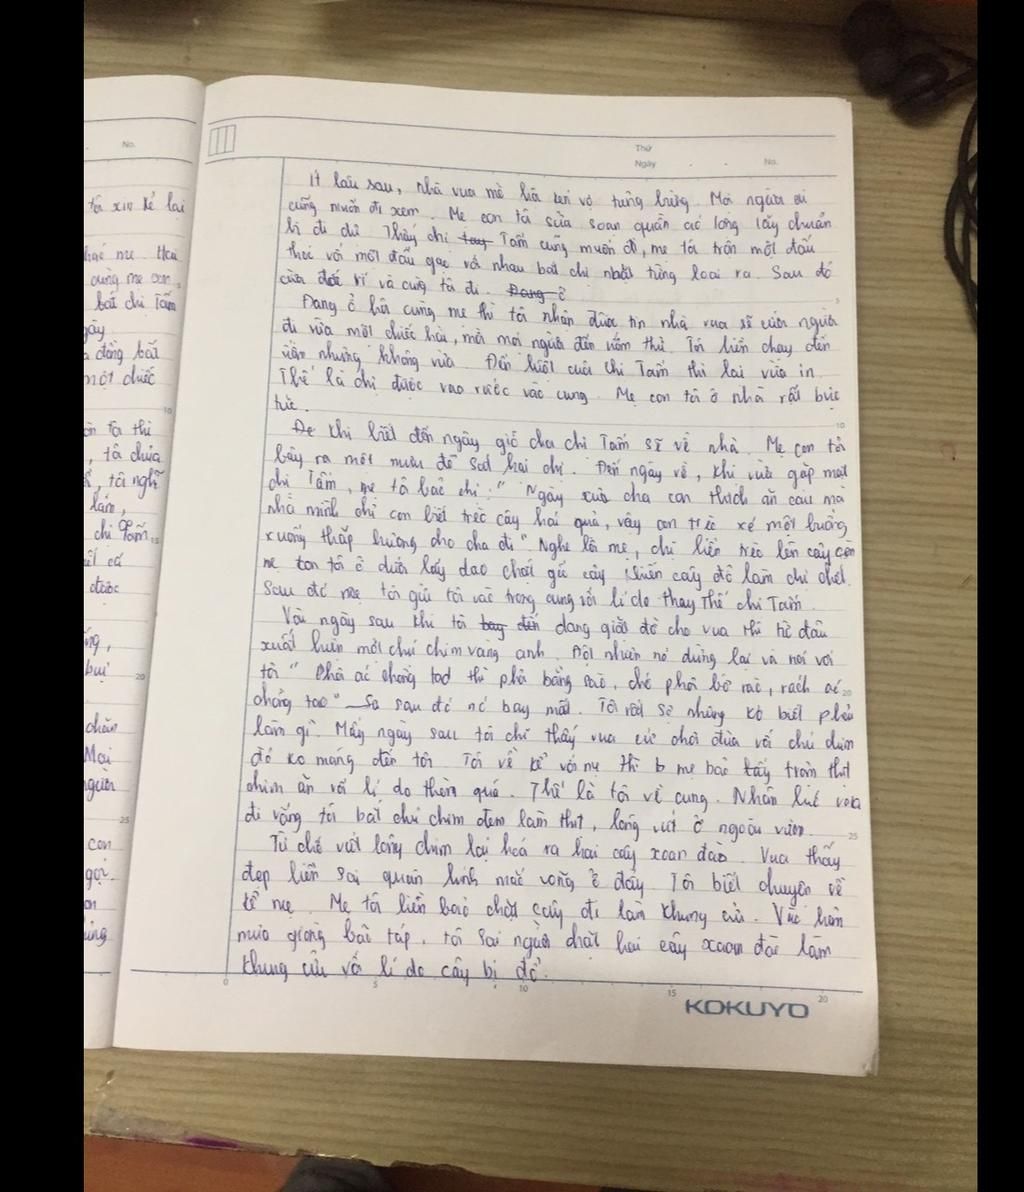 No.
Thứ
Ngày . . No.
tôi xin kể lại
cùng mẹ con
bắt chị Tấm
đồng bắt
một chiếc
tôi thì
, tôi chứa
, tôi nghĩ
lắm,
chị Tấm
được
bụi
chăn
Mọi
người
con
gọi.
Ít lâu sau, nhà vua mở hội tưng bừng. Mọi người ai
cũng muốn đi xem. Mẹ con tôi sửa soạn quần áo lộng lẫy chuẩn
bị đi dự. Thấy chị Tấm cũng muốn đi, mẹ tôi trộn một đấu
thóc với một đấu gạo với nhau bắt chị nhặt từng loại ra. Sau đó
và cùng tôi đi. Đang ở
Đang ở hội cùng mẹ thì tôi nhận được tin nhà vua sẽ cưới người
đi vừa một chiếc hài, mà mọi người đến ướm thử. Tôi liền chạy đến
nhưng không vừa. Đến lượt cuối chị Tấm thì lại vừa in
Thế là chị được vào rước vào cung. Mẹ con tôi ở nhà rất bực
tức.
Khi biết đến ngày giỗ cha chị Tấm sẽ về nhà. Mẹ con tôi
bày ra một mưu để hại chị. Đến ngày về, khi vừa gặp mặt
chị Tấm, mẹ tôi bảo chị: " Ngày xưa cha con thích ăn cau mà
nhà mình chỉ con biết trèo cây hái quả, vậy con trèo xé một buồng
xuống thắp hương cho cha đi". Nghe lời mẹ, chị liền trèo lên cây còn
mẹ con tôi ở dưới lấy dao chặt gốc cây khiến cây đổ làm chị chết.
Sau đó mẹ tôi gửi tôi vào trong cung với lí do thay thế chị Tấm.
Vài ngày sau khi tôi đang giặt đồ cho vua thì từ đâu
xuất hiện một chú chim vàng anh. Đột nhiên nó dừng lại và nói với
tôi " Phơi áo chồng tao thì phơi bằng sào, chớ phơi bờ rào, rách áo
chồng tao" sau đó nó bay mất. Tôi rất sợ nhưng ko biết phải
làm gì. Mấy ngày sau tôi chỉ thấy vua cứ chơi đùa với chú chim
đó ko màng đến tôi. Tôi về kể với mẹ thì mẹ bảo
chim ăn với lí do thèm quá. Thế là tôi về cung. Nhân lúc vua
đi vắng tôi bắt chú chim đem làm thịt, lông vứt ở ngoài vườn.
Từ chỗ vứt lông chim lại hoá ra hai cây xoan đào. Vua thấy
đẹp liền sai quân lính mắc võng ở đấy. Tôi biết chuyện về
kể mẹ. Mẹ tôi liền bảo chặt cây đi làm khung cửi. Vào hôm
mưa giông bão táp, tôi sai người chặt hai cây xoan đào làm
khung cửi với lí do cây bị đổ.
0 5 10 15 20
KOKUYO